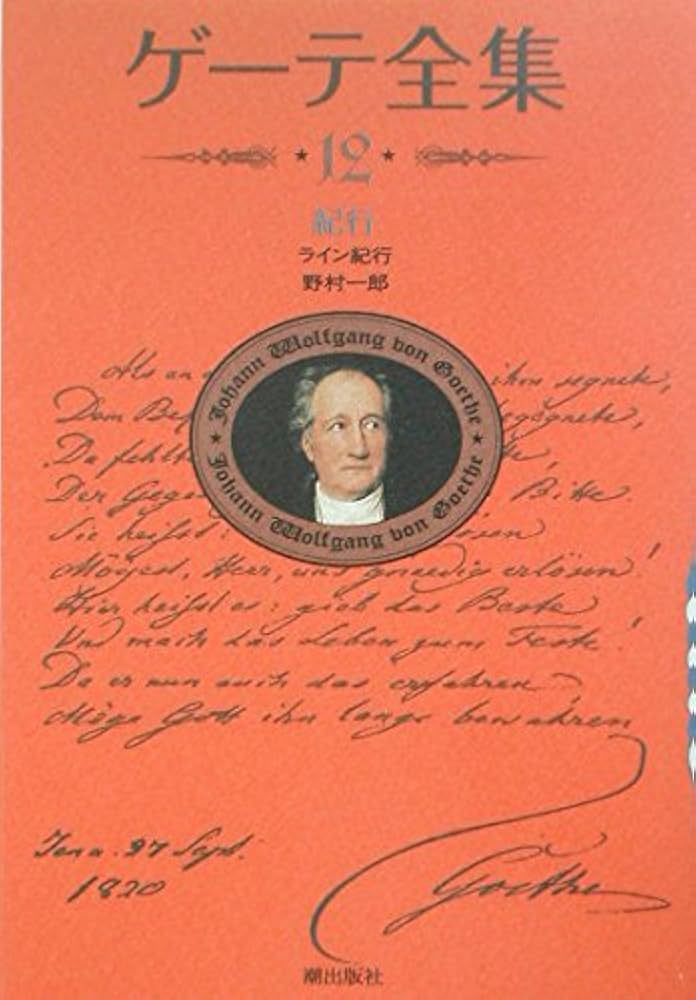 ゲーテ全集
12
紀行
ライン紀行
野村一郎
Johann Wolfgang von Goethe
Johann Wolfgang von Goethe
Als an ihm segnete,
Dem Be egegnete,
Da fehlt
Der Gege Bitte
Sie heisst:
Mögest, Herr, uns gnaedig erlösen!
Hier heisst es: gieb das Beste
Und mach das Leben zum Feste!
Da er nun auch das erfahren
Möge Gott ihn lange bewahren
Jena. 27 Sept.
1820
Goethe
潮出版社